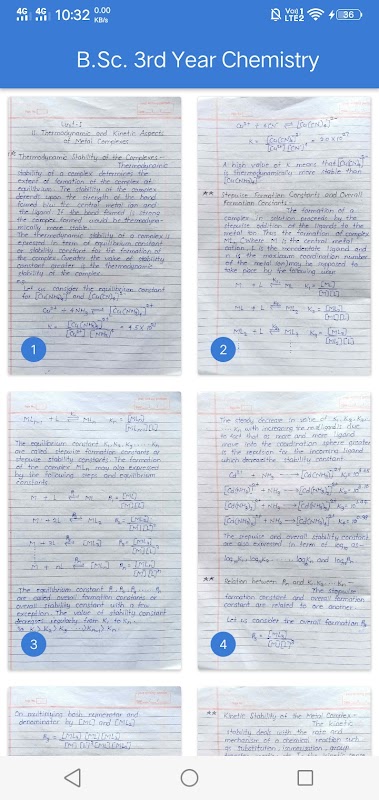 4G 4G 10:32 0.00 KB/s Vo)) 1 LTE2 36
B.Sc. 3rd Year Chemistry
Unit-I
II. Thermodynamic and Kinetic Aspects
of Metal Complexes
** Thermodynamic Stability of the Complexes:-
Thermodynamic
stability of a complex determines the
extent of formation of the complex at
equilibrium. The stability of the complex
depends upon the strength of the bond
formed b/w the central metal ion and
the ligand. If the bond formed is strong
the complex formed would be thermodyna-
mically more stable.
The thermodynamic stability of a complex is
expressed in term of equilibrium constant
or stability constant for the formation of
the complex. Greater the value of stability
constant greater is the thermodynamic
stability of the complex.
Let us consider the equilibrium constant
for [Cu(NH3)4]2+ and [Cu(CN)4]2-
Cu2+ + 4NH3 ⇌ [Cu(NH3)4]2+
K = [Cu(NH3)4]2+ / [Cu2+] [NH3]4 = 4.5 X 10
1
Cu2+ + 4CN- ⇌ [Cu(CN)4]2-
K = [Cu(CN)4]2- / [Cu2+] [CN-]4 = 2.0 X 1027
A high value of K means that [Cu(CN)4]2-
is thermodynamically more stable than
[Cu(NH3)4]2+
** Stepwise Formation Constants and Overall
Formation Constants:-
The formation of a
complex in solution proceeds by the
stepwise addition of the ligands to the
metal ion. Thus the formation of complex
MLn (where M is the central metal
cation, L is the monodentate ligand and
n is the maximum coordination number
of the metal ion) may be supposed to
take place by the following
M + L ⇌ ML K1 = [ML] / [M][L]
ML + L ⇌ ML2 K2 = [ML2] / [ML][L]
ML2 + L ⇌ ML3 K3 = [ML3] / [ML2][L]
2
MLn-1 + L ⇌ MLn Kn = [MLn] / [MLn-1][L]
The equilibrium constant K1, K2, K3 ..... Kn
are called stepwise formation constants or
stepwise stability constants. The formation
of the complex MLn may also expressed
by the following steps and equilibrium
constants.
M + L ⇌ ML [ML] / [M][L]
M + 2L ⇌ ML2 [ML2] / [M][L]2
[ML3]
M + nL ⇌ [MLn] / [M][L]n
The equilibrium constant
are called overall formation constants or
overall stability constant with a few
exception. The value of stability constant
decreases regularly from K1 to Kn.
3
The steady decrease in value of K1, K2, K3....
... Kn with increasing the no of ligand is due
to fact that as more and more ligand
move into the coordination sphere greater
is the reaction for the incoming ligand
which decreases the stability constant.
Cd2+ + NH3 → [Cd(NH3)]2+
[Cd(NH3)]2+ + NH3 → [Cd(NH3)2]2+
[Cd(NH3)2]2+ + NH3 → [Cd(NH3)3]2+
[Cd(NH3)3]2+ + NH3 → [Cd(NH3)4]2+
The stepwise and overall stability constant
are also expressed in term of log10 as-
log10K1, log10K2 ...... log10Kn and
** Relation between and K1, K2 ..... Kn -
The stepwise
formation constant and overall formation
constant are related to one another.
Let us consider the overall formation
[ML3] / [M][L]3
4
On multiplying both numerator and
denominator by [ML] and [ML2]
[ML3] [ML] [ML2] / [M] [L]3 [ML] [ML2]
** Kinetic Stability of the Metal Complex:-
The kinetic
stability deals with the rate and
mechanism of a chemical reaction such
as substitution, isomerisation, group